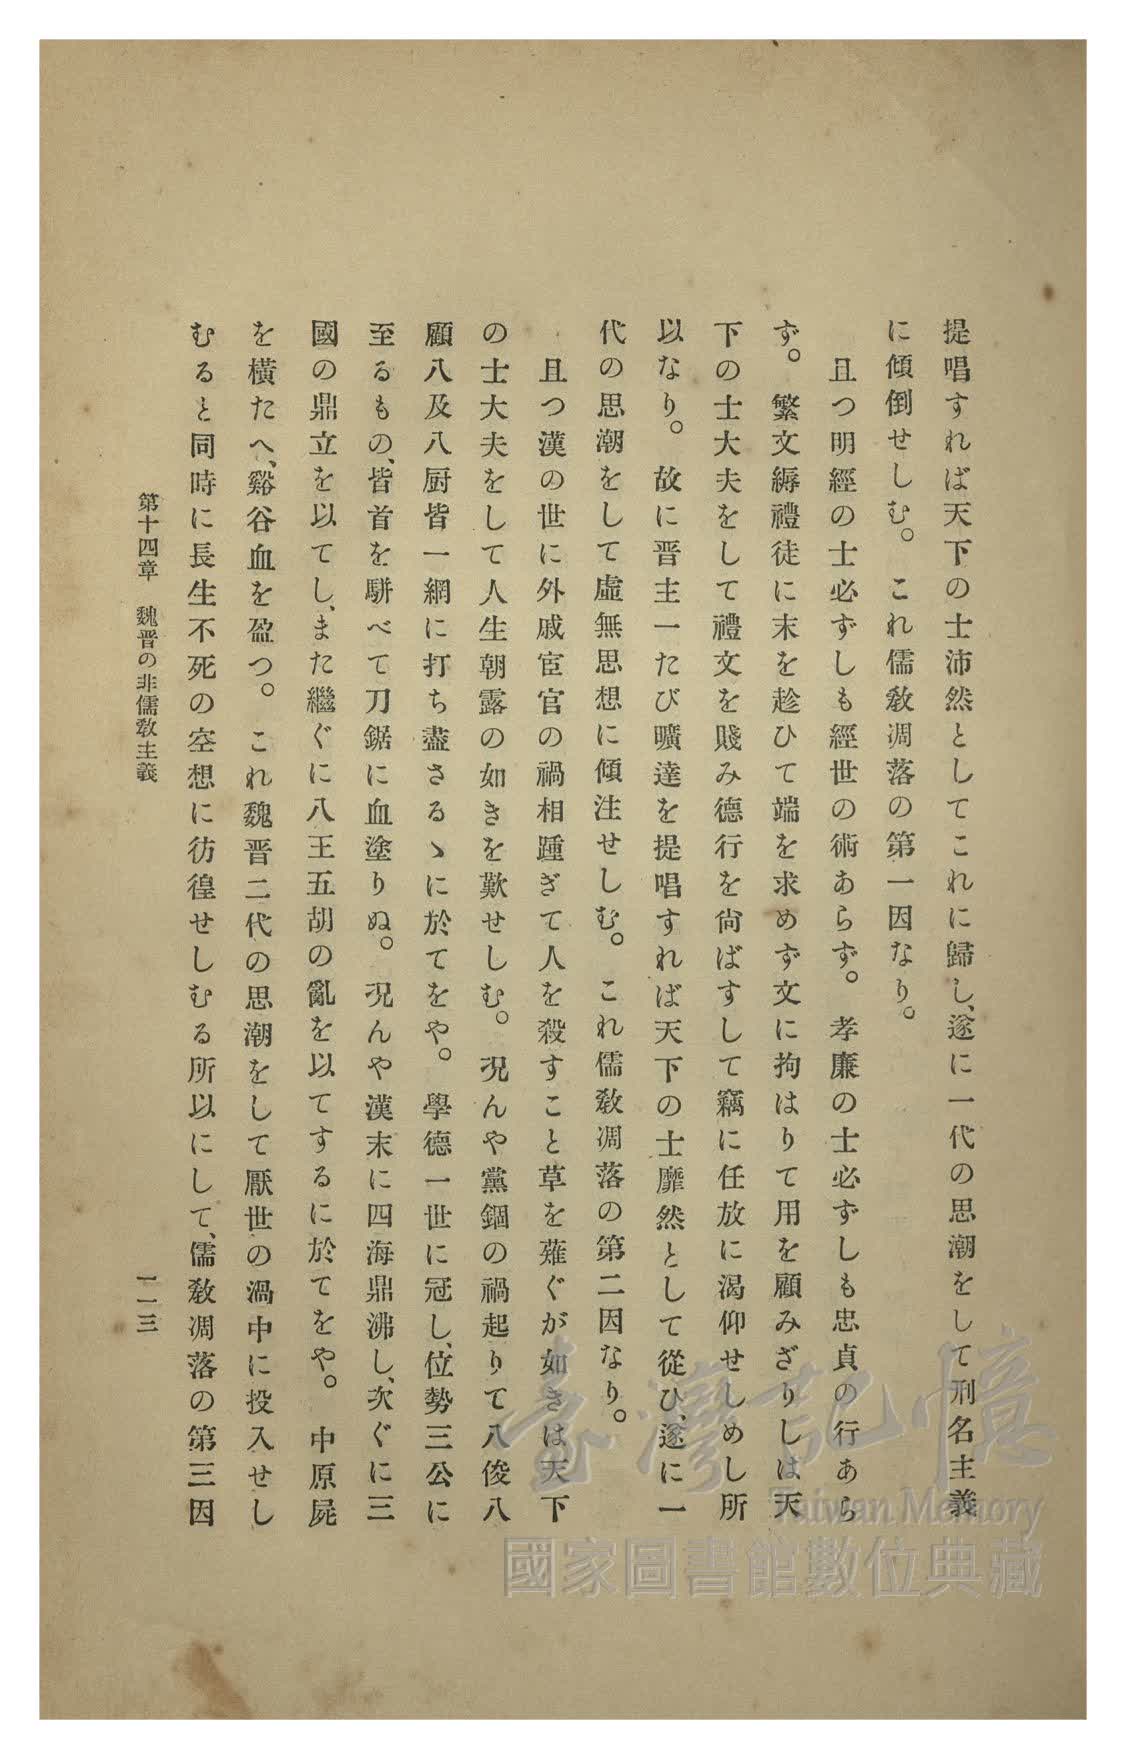 提唱すれば天下の士沛然としてこれに歸し、遂に一代の思潮をして刑名主義
に傾倒せしむ。これ儒教凋落の第一因なり。
且つ明經の士必ずしも經世の術あらず。孝廉の士必ずしも忠貞の行あら
ず。繁文縟禮徒に末を趁ひて端を求めず文に拘はりて用を顧みざりしは天
下の士大夫をして禮文を賤み德行を尙ばすして竊に任放に渴仰せしめし所
以なり。故に晋主一たび曠達を提唱すれば天下の士靡然として從ひ、遂に一
代の思潮をして虛無思想に傾注せしむ。これ儒教凋落の第二因なり。
且つ漢の世に外戚宦官の禍相踵ぎて人を殺すこと草を薙ぐが如きは天下
の士大夫をして人生朝露の如きを歎せしむ。況んや黨錮の禍起りて八俊八
顧八及八厨皆一網に打ち盡さるゝに於てをや。學德一世に冠し、位勢三公に
至るもの、皆首を駢べて刀鋸に血塗りぬ。況んや漢末に四海鼎沸し、次ぐに三
國の鼎立を以てし、また繼ぐに八王五胡の亂を以てするに於てをや。中原屍
を橫たへ、谿谷血を盈つ。これ魏晋二代の思潮をして厭世の渦中に投入せし
むると同時に長生不死の空想に彷徨せしむる所以にして、儒教凋落の第三因
第十四章　魏晋の非儒教主義
一二三
臺灣記憶
Taiwan Memory
國家圖書館數位典藏